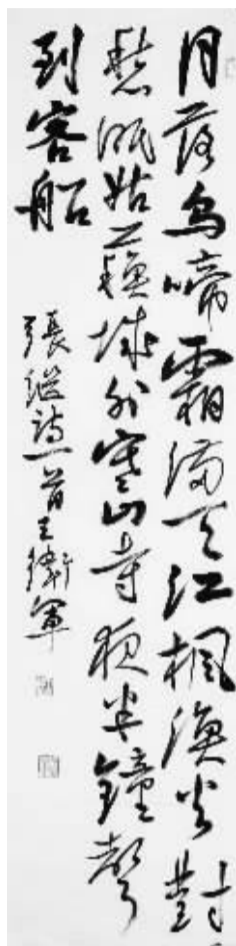 月落烏啼霜滿天江楓漁火對
愁眠姑蘇城外寒山寺夜半鐘聲
到客船
張繼詩一首王衛軍